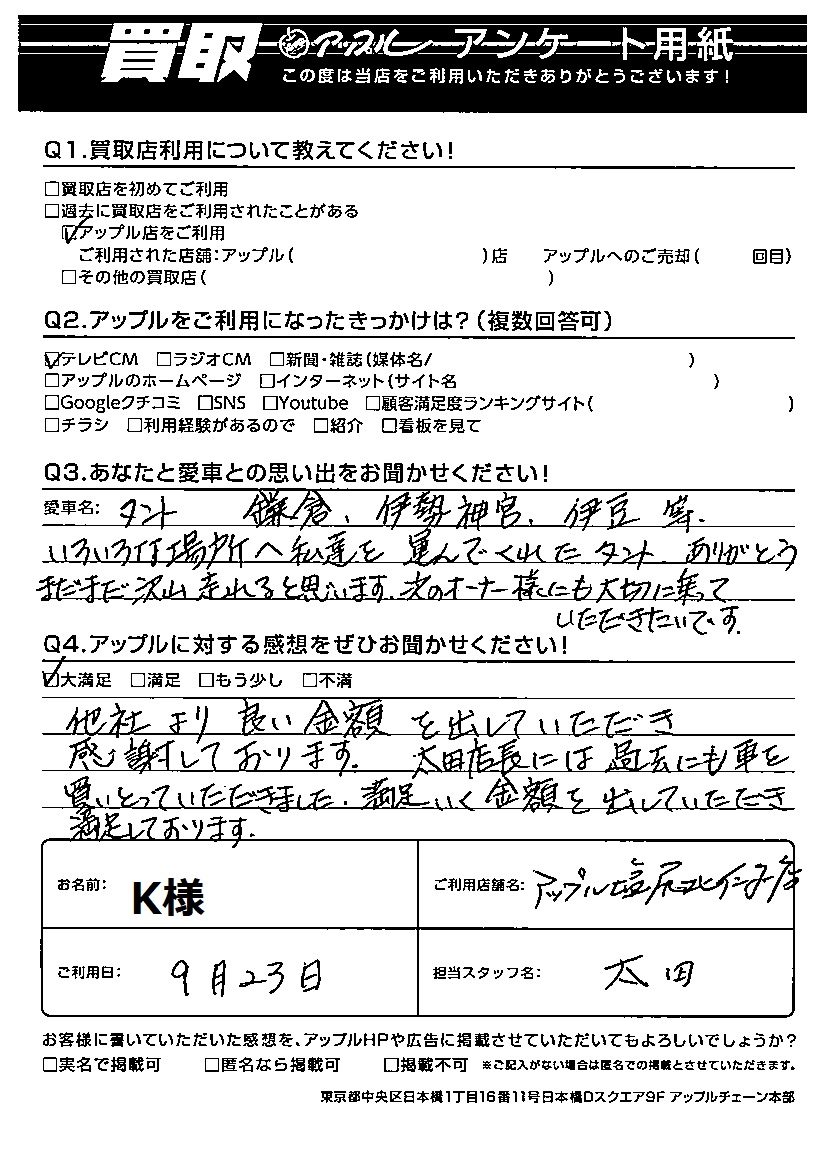 買取 アップル アンケート用紙
この度は当店をご利用いただきありがとうございます!
Q1.買取店利用について教えてください!
□買取店を初めてご利用
□過去に買取店をご利用されたことがある
☑アップル店をご利用
ご利用された店舗:アップル( )店 アップルへのご売却( 回目)
□その他の買取店( )
Q2.アップルをご利用になったきっかけは?(複数回答可)
☑テレビCM □ラジオCM □新聞・雑誌(媒体名/ )
□アップルのホームページ □インターネット(サイト名 )
□Googleクチコミ □SNS □Youtube □顧客満足度ランキングサイト( )
□チラシ □利用経験があるので □紹介 □看板を見て
Q3.あなたと愛車との思い出をお聞かせください!
愛車名: タント 鎌倉、伊勢神宮、伊豆 等、
いろいろな場所へ私達を運んでくれたタント、ありがとう
まだまだ沢山走れると思います。次のオーナー様にも大切に乗って
いただきたいです。
Q4.アップルに対する感想をぜひお聞かせください!
☑大満足 □満足 □もう少し □不満
他社より良い金額を出していただき
感謝しております。太田店長には過去にも車を
買いとっていただきました。満足いく金額を出していただき
満足しております。
お名前: K様
ご利用店舗名: アップル塩尻北インター店
ご利用日: 9月23日
担当スタッフ名: 太田
お客様に書いていただいた感想を、アップルHPや広告に掲載させていただいてもよろしいでしょうか?
□実名で掲載可 □匿名なら掲載可 □掲載不可 ※ご記入がない場合は匿名での掲載とさせていただきます。
東京都中央区日本橋1丁目16番11号日本橋Dスクエア9F アップルチェーン本部